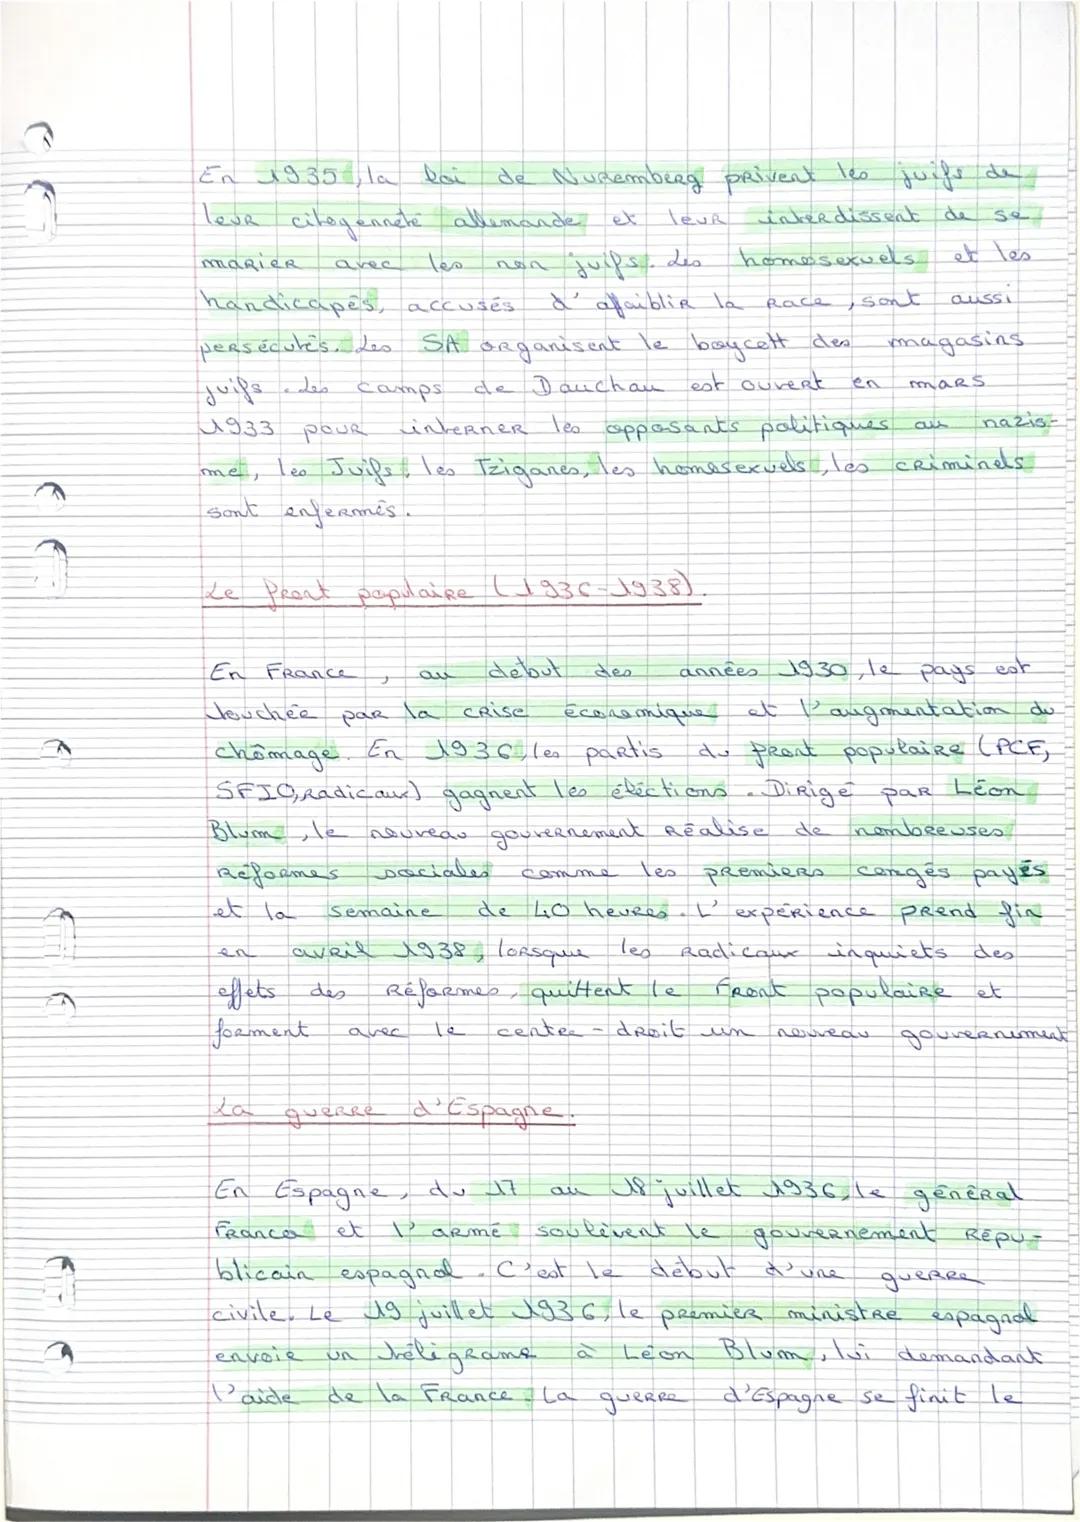 En 1935, la loi de Nuremberg privent les juifs de
leur citoyenneté allemande et leur interdissent de se
marier avec les non juifs. Les homosexuels et les
handicapés, accusés d'affaiblir la race, sont aussi
persécutés. Les SA organisent le boycott des magasins
juifs. Les camps de Dauchau est ouvert en mars
1933 pour interner les opposants politiques au nazis-
me, les Juifs, les Tziganes, les homosexuels, les criminels
sont enfermés.
Le front populaire (1936-1938).
En France, au début des années 1930, le pays est
touchée par la crise économique et l'augmentation du
chômage. En 1936, les partis du front populaire (PCF,
SFIO, radicaux) gagnent les éléctions. Dirigé par Léon
Blum, le nouveau gouvernement réalise de nombreuses
réformes sociales comme les premiers congés payés
et la semaine de 40 heures. L'expérience prend fin
en avril 1938, lorsque les radicaux inquiets des
effets des réformes, quittent le Front populaire et
forment avec le centre-droit un nouveau gouvernement
La guerre d'Espagne.
En Espagne, du 17 au 18 juillet 1936, le général
Franco et l'armé soulèvent le gouvernement répu-
blicain espagnol. C'est le début d'une guerre
civile. Le 19 juillet 1936, le premier ministre espagnol
envoie un téligrame à Léon Blum, lui demandant
l'aide de la France. La guerre d'Espagne se finit le